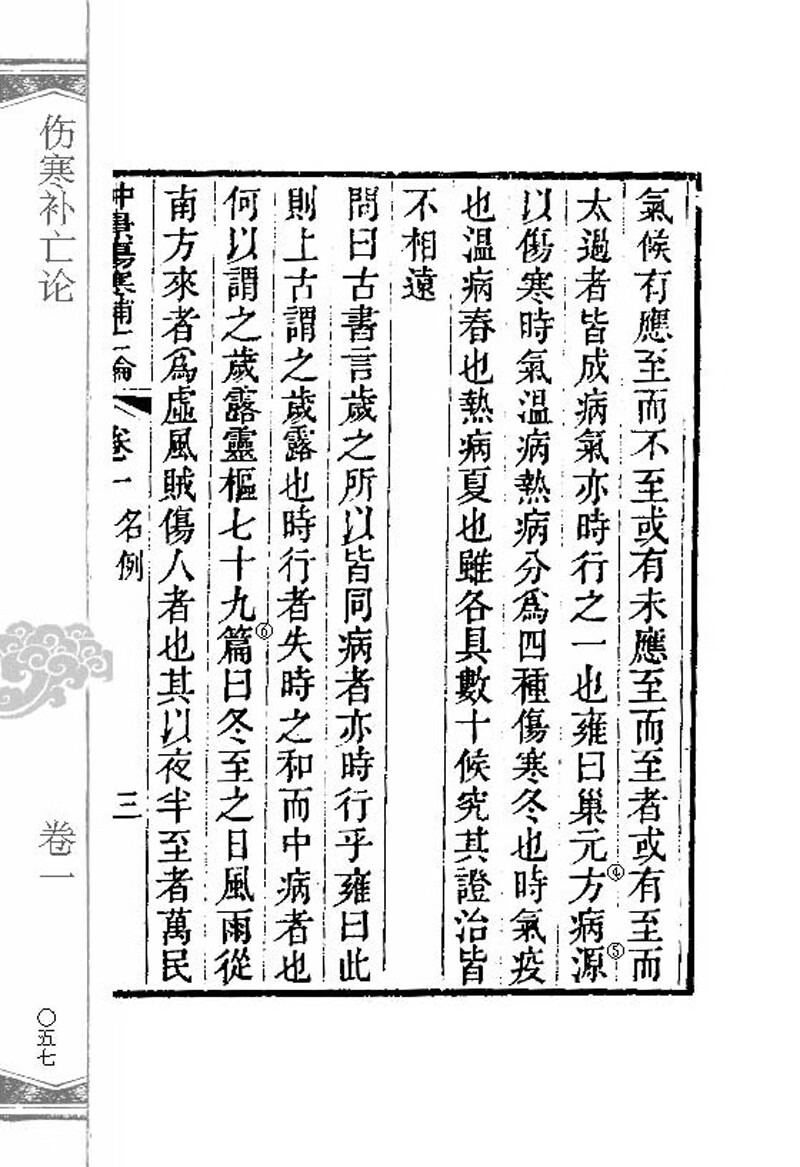 氣候有應至而不至或有未應至而至者或有至而
太過者皆成病氣亦時行之一也雍曰巢元方④病源⑤
以傷寒時氣溫病熱病分爲四種傷寒冬也時氣疫
也溫病春也熱病夏也雖各具數十候究其證治皆
不相遠
問曰古書言歲之所以皆同病者亦時行乎雍曰此
則上古謂之歲露也時行者失時之和而中病者也
何以謂之歲露靈樞七十九篇⑥曰冬至之日風雨從
南方來者爲虛風賊傷人者也其以夜半至者萬民
傷寒補亡論 卷一 名例 三
伤寒补亡论
卷一
〇五七